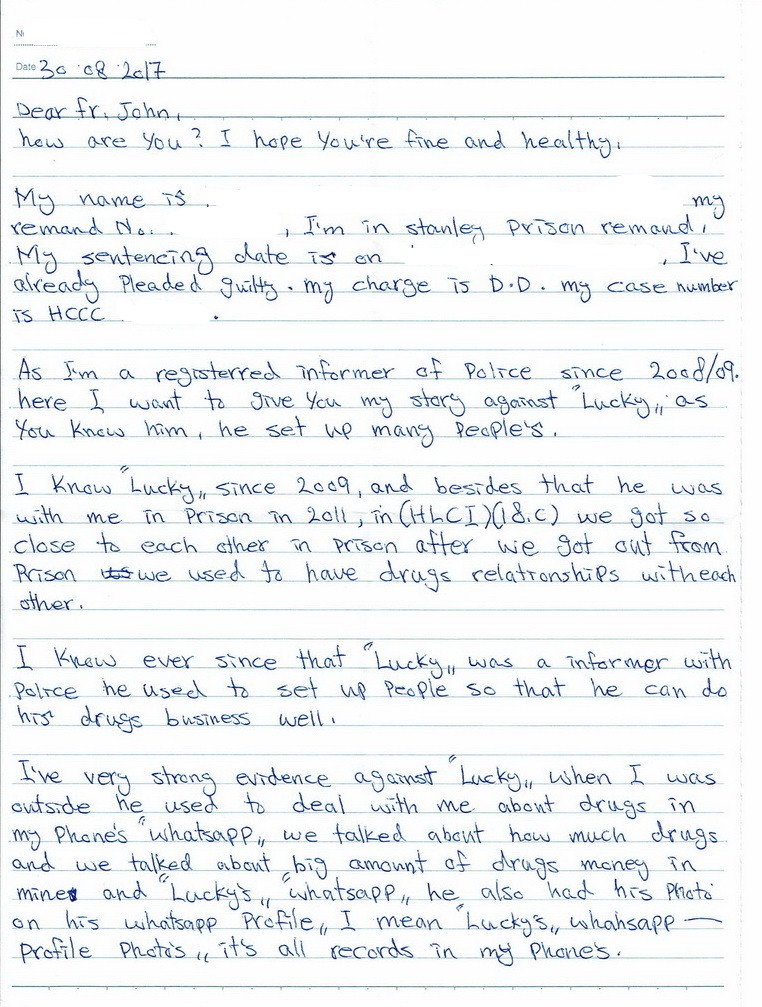 No
Date 30 · 08 · 2017
Dear Fr. John,
how are you? I hope you're fine and healthy.
My name is . my
remand No.. , I'm in stanley prison remand,
My sentencing date is on , I've
already Pleaded guilty. my charge is D.D. my case number
is HCCC .
As I'm a registerred informer of Police since 2008/09.
here I want to give you my story against "Lucky„ as
you know him, he set up many people's.
I know "Lucky„ since 2009, and besides that he was
with me in Prison in 2011, in (HLCI)(18.C) we got so
close to each other in prison after we got out from
Prison we used to have drugs relationships witheach
other.
I know ever since that "Lucky„ was a informer with
Police he used to set up people so that he can do
his drugs business well.
I've very strong evidence against "Lucky„ when I was
outside he used to deal with me about drugs in
my Phone's "whatsapp„ we talked about how much drugs
and we talked about big amount of drugs money in
mines and "Lucky's„ "whatsapp„ he also had his Photo
on his whatsapp Profile„ I mean "Lucky's„ whahsapp —
Profile Photo's„ it's all records in my Phone's.